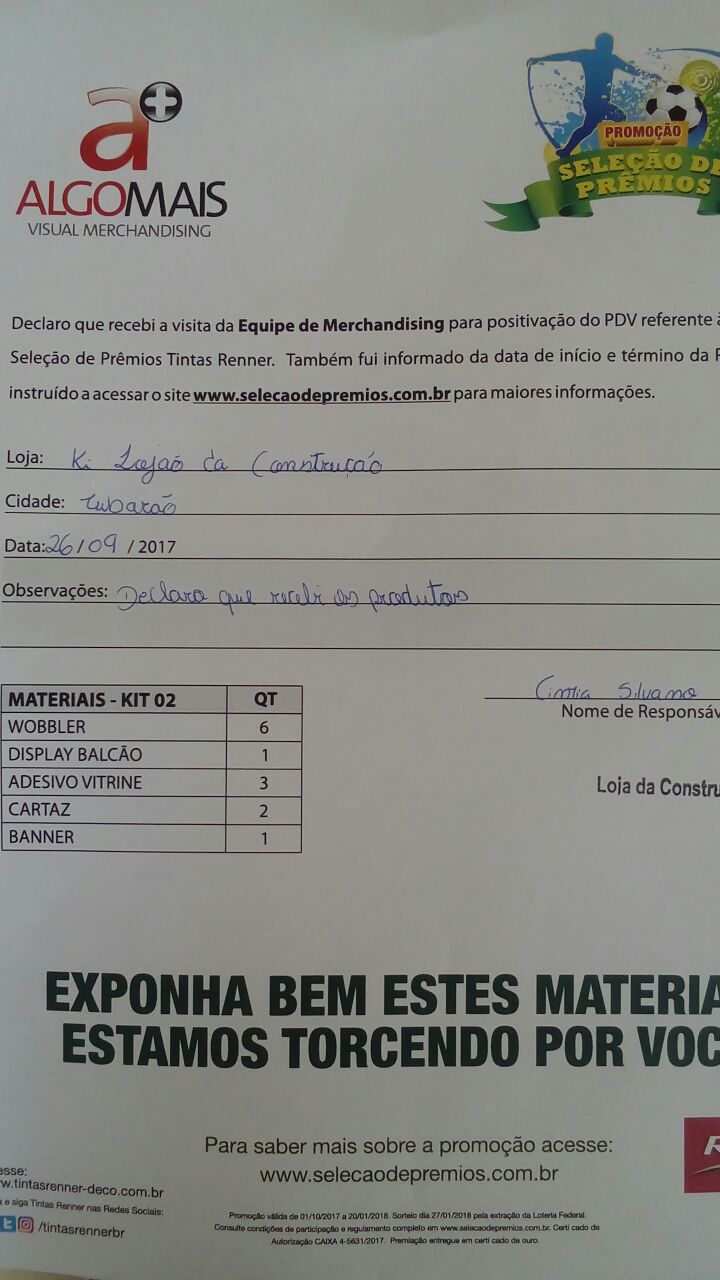 a+
ALGOMAIS
VISUAL MERCHANDISING
PROMOÇÃO
SELEÇÃO DE
PRÊMIOS
Declaro que recebi a visita da Equipe de Merchandising para positivação do PDV referente à
Seleção de Prêmios Tintas Renner. Também fui informado da data de início e término da P
instruído a acessar o site www.selecaodepremios.com.br para maiores informações.
Loja: Ki Lojaõ da Construção
Cidade: Tubarão
Data: 26/09/2017
Observações: Declaro que recebi os produtos
Silvano
Nome de Responsáv
Loja da Constru
MATERIAIS - KIT 02 QT
WOBBLER 6
DISPLAY BALCÃO 1
ADESIVO VITRINE 3
CARTAZ 2
BANNER 1
EXPONHA BEM ESTES MATERIA
ESTAMOS TORCENDO POR VOC
Para saber mais sobre a promoção acesse:
www.selecaodepremios.com.br
esse:
w.tintasrenner-deco.com.br
a e siga Tintas Renner nas Redes Sociais:
/tintasrennerbr
Promoção válida de 01/10/2017 a 20/01/2018. Sorteio dia 27/01/2018 pela extração da Loteria Federal.
Consulte condições de participação e regulamento completo em www.selecaodepremios.com.br. Certi cado de
Autorização CAIXA 4-5631/2017. Premiação entregue em certi cado de ouro.
R